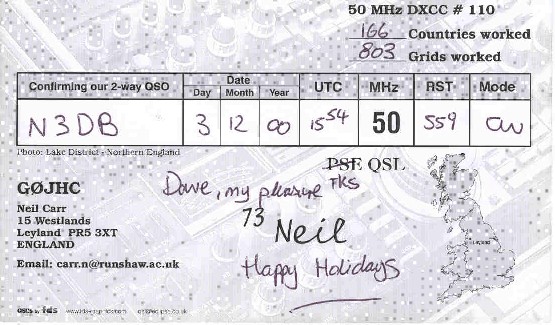 50 MHz DXCC # 110
166 Countries worked
803 Grids worked
Confirming our 2-way QSO
Date
Day Month Year
UTC
MHz
RST
Mode
N3DB 3 12 00 1554 50 559 CW
Photo: Lake District - Northern England
PSE QSL
TKS
Dave, my pleasure
73
Neil
Happy Holidays
GØJHC
Neil Carr
15 Westlands
Leyland PR5 3XT
ENGLAND
Email: carr.n@runshaw.ac.uk
QSLs by